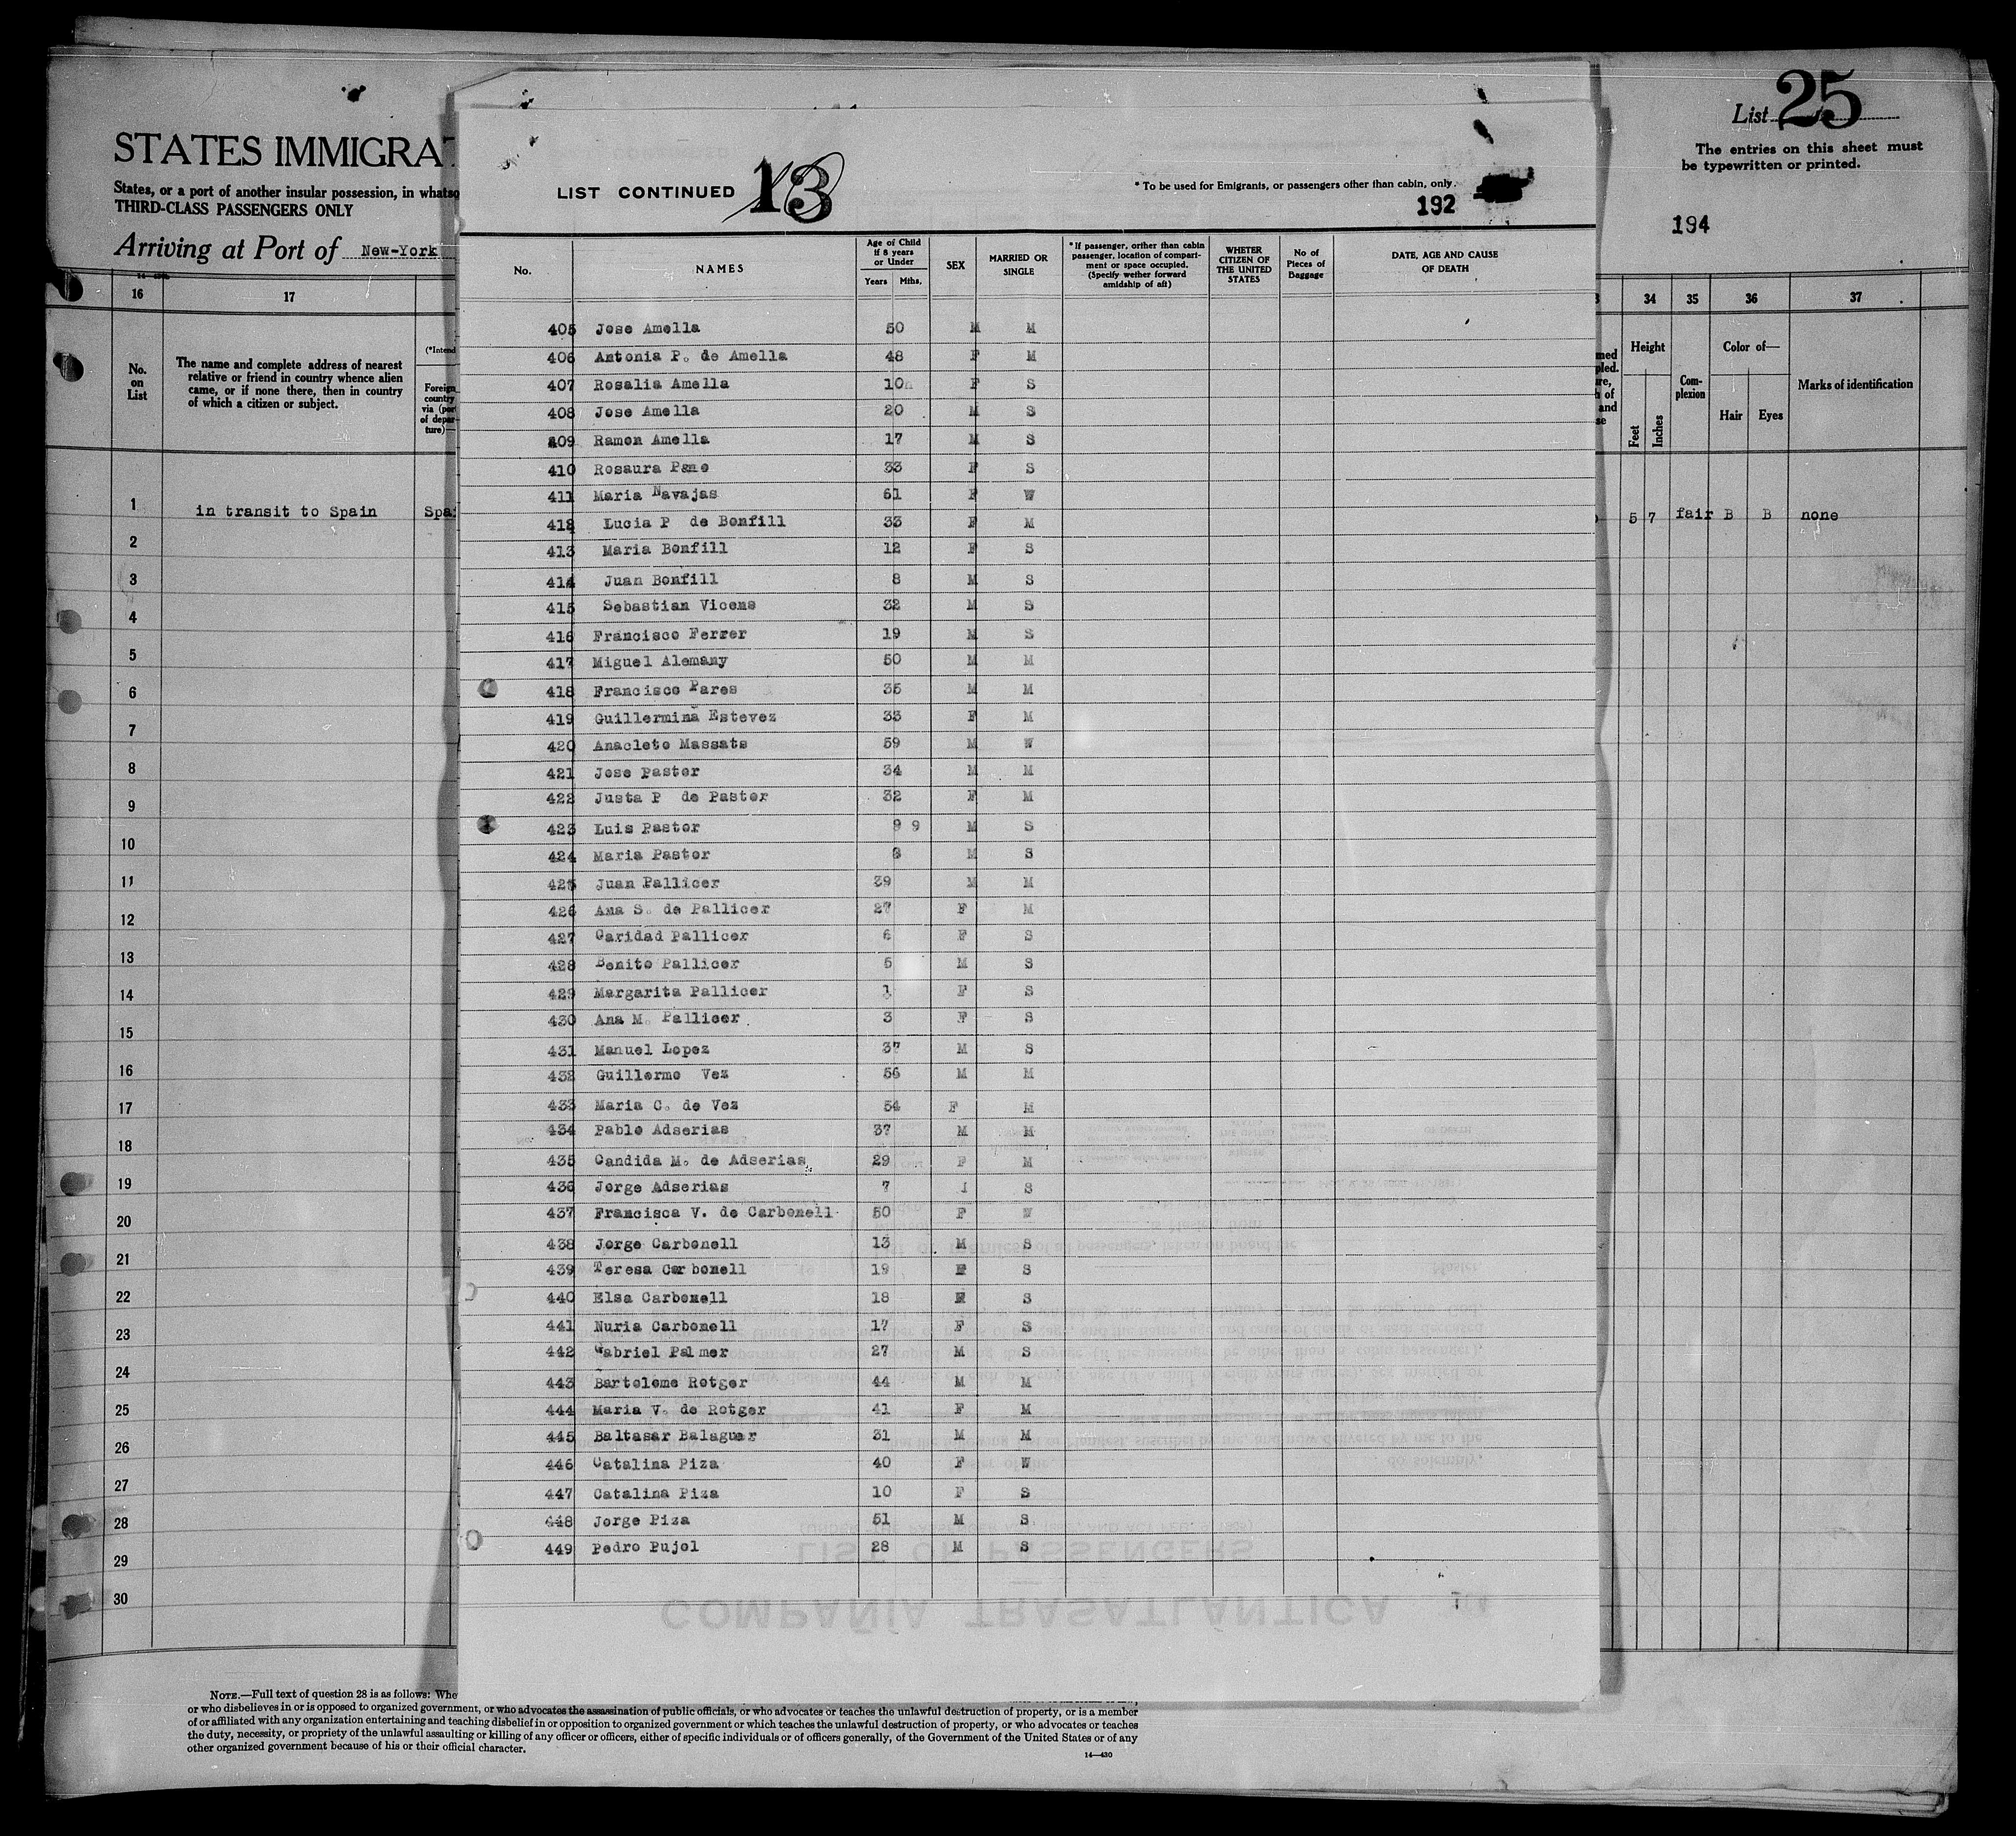 STATES IMMIGRAT
States, or a port of another insular possession, in whatso
THIRD-CLASS PASSENGERS ONLY
Arriving at Port of New-York
16 17
No. on List
The name and complete address of nearest
relative or friend in country whence alien
came, or if none there, then in country
of which a citizen or subject.
(*Intend
Foreign
country
via (port
of depar-
ture)—
1 in transit to Spain Spai
2
3
4
5
6
7
8
9
10
11
12
13
14
15
16
17
18
19
20
21
22
23
24
25
26
27
28
29
30
LIST CONTINUED 13
* To be used for Emigrants, or passengers other than cabin, only.
192
No.
NAMES
Age of Child
if 8 years
or Under
Years Mths.
SEX
MARRIED OR
SINGLE
* If passenger, orther than cabin
passenger, location of compart-
ment or space occupied.
(Specify wether forward
amidship of aft)
WHETER
CITIZEN OF
THE UNITED
STATES
No of
Pieces of
Baggage
DATE, AGE AND CAUSE
OF DEATH
405 Jose Amella 50 M M
406 Antonia P. de Amella 48 F M
407 Rosalia Amella 10 F S
408 Jose Amella 20 M S
409 Ramon Amella 17 M S
410 Rosaura Pane 33 F S
411 Maria Navajas 61 F W
412 Lucia P de Bonfill 33 F M
413 Maria Bonfill 12 F S
414 Juan Bonfill 8 M S
415 Sebastian Vicens 32 M S
416 Francisco Ferrer 19 M S
417 Miguel Alemany 50 M M
418 Francisco Pares 35 M M
419 Guillermina Estevez 33 F M
420 Anacleto Massats 59 M W
421 Jose Pastor 34 M M
422 Justa P de Pastor 32 F M
423 Luis Pastor 9 9 M S
424 Maria Pastor 8 M S
425 Juan Pallicer 39 M M
426 Ana S. de Pallicer 27 F M
427 Caridad Pallicer 6 F S
428 Benito Pallicer 5 M S
429 Margarita Pallicer 1 F S
430 Ana M. Pallicer 3 F S
431 Manuel Lopez 37 M S
432 Guillermo Vez 56 M M
433 Maria C. de Vez 54 F M
434 Pablo Adserias 37 M M
435 Candida M. de Adserias 29 F M
436 Jorge Adserias 7 S
437 Francisca V. de Carbonell 50 F W
438 Jorge Carbonell 13 M S
439 Teresa Carbonell 19 F S
440 Elsa Carbonell 18 F S
441 Nuria Carbonell 17 F S
442 Gabriel Palmer 27 M S
443 Bartolome Rotger 44 M M
444 Maria V. de Rotger 41 F M
445 Baltasar Balaguer 31 M M
446 Catalina Piza 40 F W
447 Catalina Piza 10 F S
448 Jorge Piza 51 M S
449 Pedro Pujol 28 M S
LIST OF PASSENGERS
COMPAÑIA TRASATLANTICA
List 25
The entries on this sheet must
be typewritten or printed.
194
34 35 36 37
Height
Feet Inches
Com-
plexion
Color of—
Hair Eyes
Marks of identification
5 7 fair B B none
NOTE.—Full text of question 28 is as follows: Whe
or who disbelieves in or is opposed to organized government, or who advocates the assassination of public officials, or who advocates or teaches the unlawful destruction of property, or is a member
of or affiliated with any organization entertaining and teaching disbelief in or opposition to organized government or which teaches the unlawful destruction of property, or who advocates or teaches
the duty, necessity, or propriety of the unlawful assaulting or killing of any officer or officers, either of specific individuals or of officers generally, of the Government of the United States or of any
other organized government because of his or their official character.
14—430